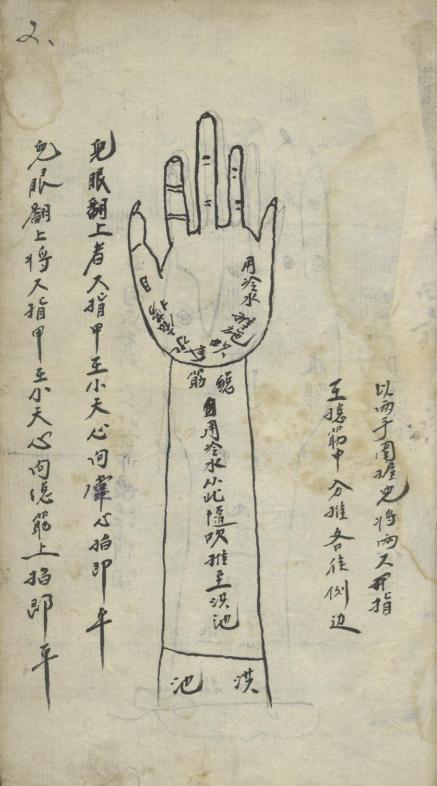 2、
以两手围握也将两大拇指
至揔筋中分推各往侧边
用冷水
推
揔筋
用冷水从此随吹推至洪池
洪池
兒眼翻上者大指甲至小天心向掌心掐即平
兒眼翻上将大指甲至小天心向揔筋上掐即平